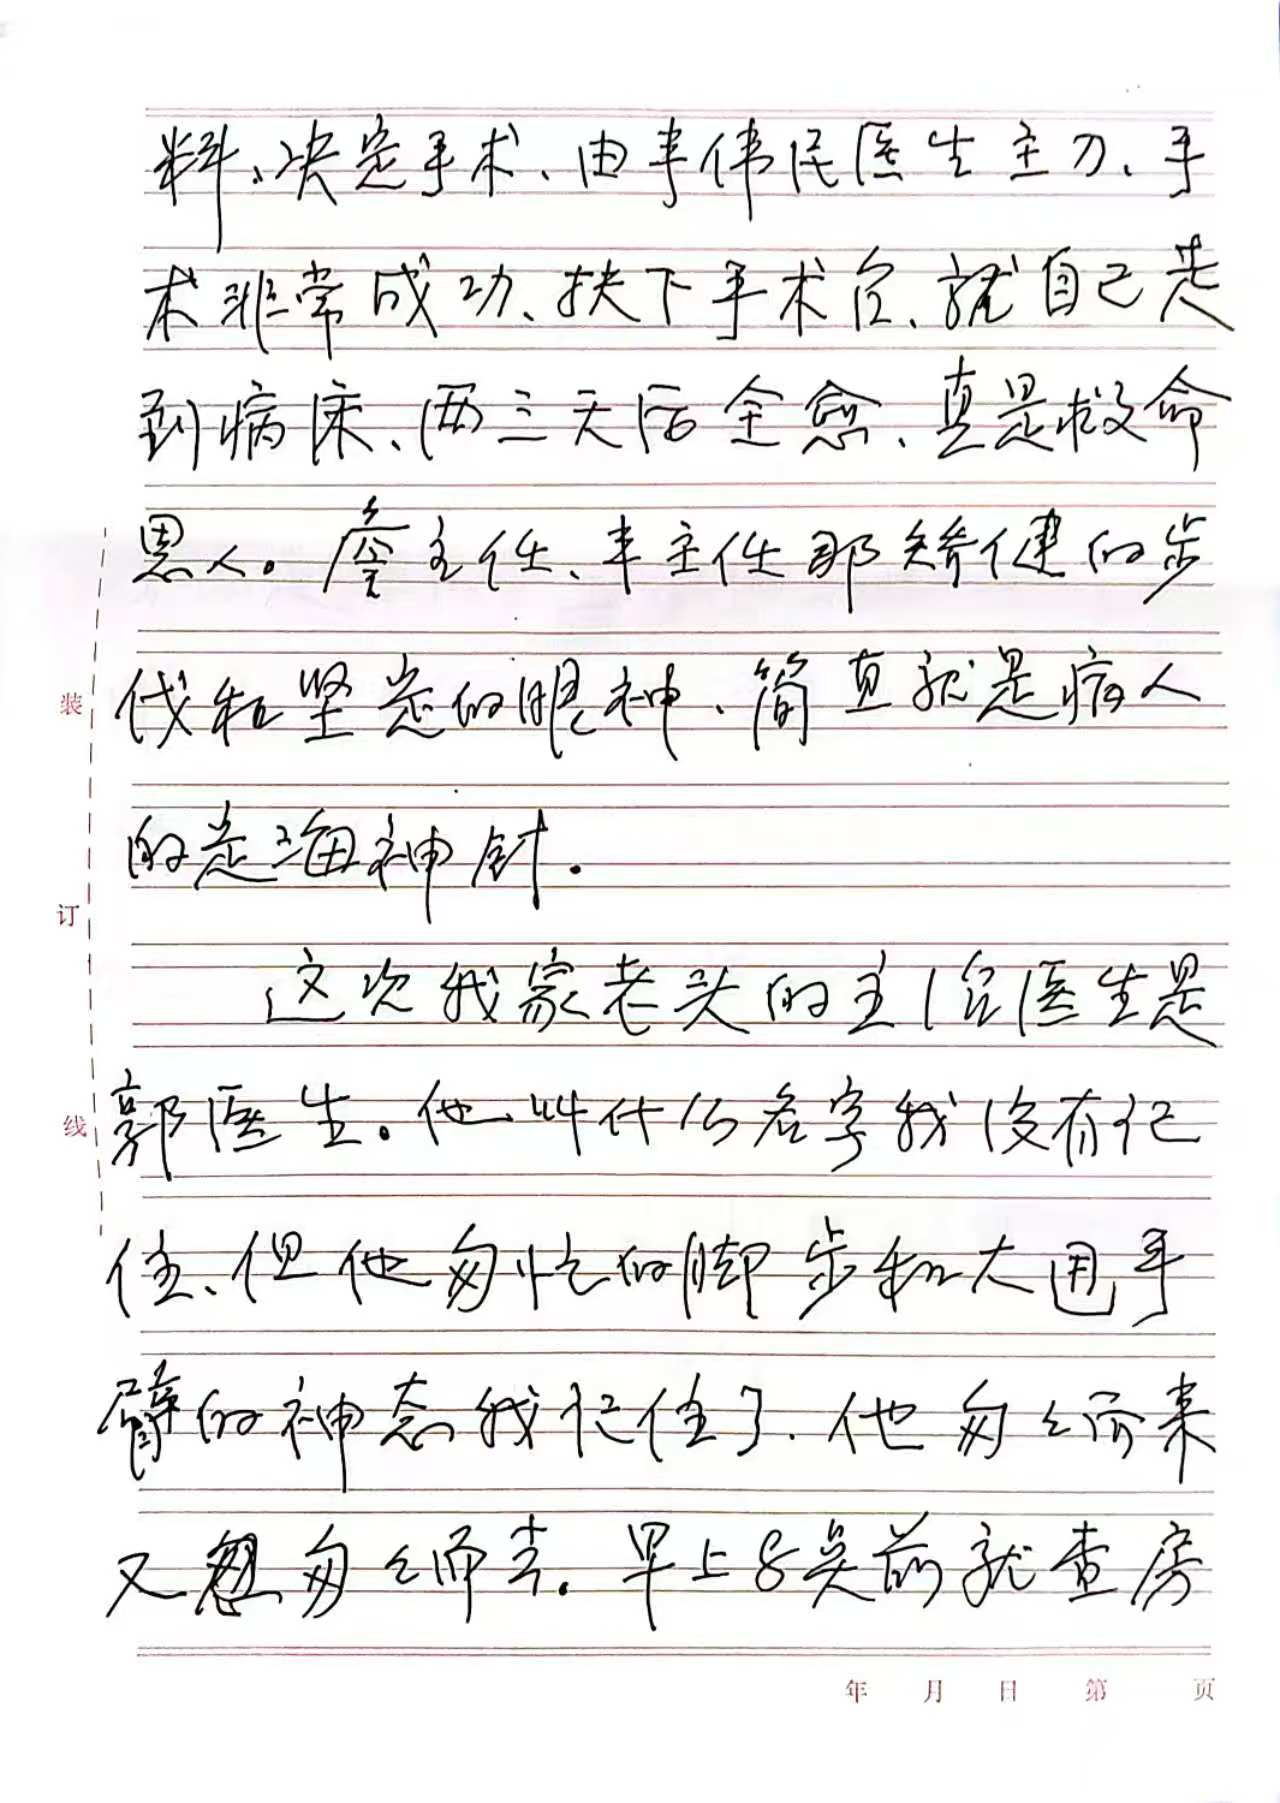 料、决定手术、由丰伟民医生主刀、手
术非常成功、扶下手术台、就自己走
到病床、两三天后全愈、真是救命
恩人。詹主任、丰主任那矫健的步
伐和坚定的眼神、简直就是病人
的定海神针.
这次我家老头的主治医生是
郭医生。他叫什么名字我没有记
住、但他匆忙的脚步和大甩手
臂的神态我记住了.他匆々而来
又匆々而去.早上8点前就查房
装
订
线
年 月 日 第 页